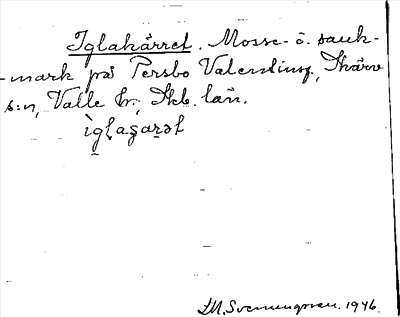 Iglakärret. Mosse- o. sank-
-mark på Persbo Valentinsg., Skärv
s:n, Valle hr., Skb. län.
S.M. Svenungsson. 1946.